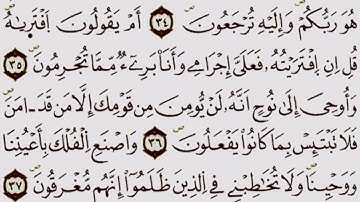 هُوَ رَبُّكُمْ وَإِلَيْهِ تُرْجَعُونَ ٣٤ أَمْ يَقُولُونَ افْتَرَىٰهُ
قُلْ إِنِ افْتَرَيْتُهُ فَعَلَيَّ إِجْرَامِي وَأَنَا۠ بَرِيٓءٌ مِّمَّا تُجْرِمُونَ ٣٥
وَأُوحِيَ إِلَىٰ نُوحٍ أَنَّهُ لَن يُؤْمِنَ مِن قَوْمِكَ إِلَّا مَن قَدْ ءَامَنَ
فَلَا تَبْتَئِسْ بِمَا كَانُوا يَفْعَلُونَ ٣٦ وَاصْنَعِ الْفُلْكَ بِأَعْيُنِنَا
وَوَحْيِنَا وَلَا تُخَاطِبْنِي فِي الَّذِينَ ظَلَمُوا إِنَّهُم مُّغْرَقُونَ ٣٧